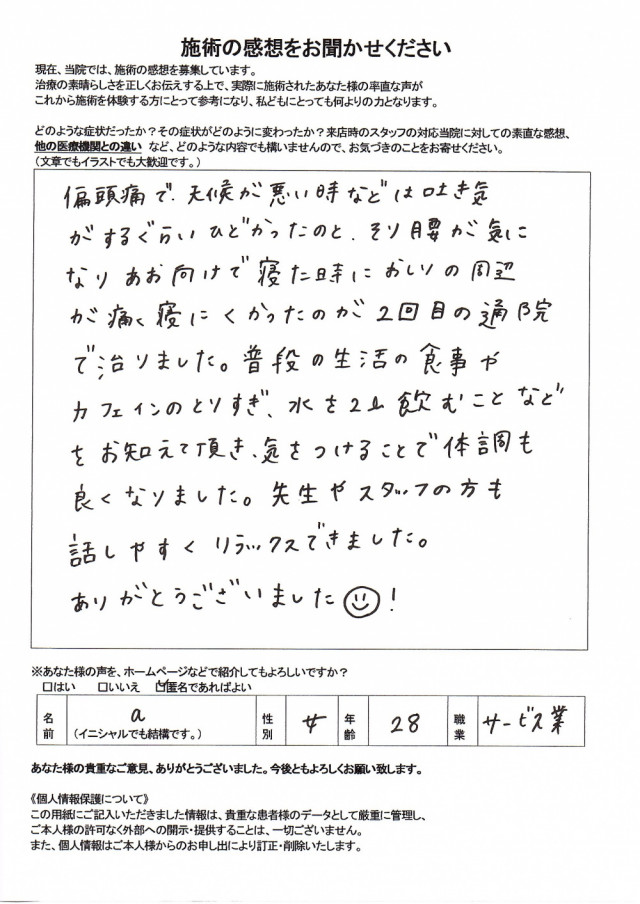 施術の感想をお聞かせください
現在、当院では、施術の感想を募集しています。
治療の素晴らしさを正しくお伝えする上で、実際に施術されたあなた様の率直な声が
これから施術を体験する方にとって参考になり、私どもにとっても何よりの力となります。
どのような症状だったか？その症状がどのように変わったか？来店時のスタッフの対応当院に対しての素直な感想、
他の医療機関との違い など、どのような内容でも構いませんので、お気づきのことをお寄せください。
（文章でもイラストでも大歓迎です。）
偏頭痛で、天候が悪い時などは吐き気
がするぐらいひどかったのと、そり腰が気に
なりあお向けで寝た時におしりの周辺
が痛く寝にくかったのが2回目の通院
で治りました。普段の生活の食事や
カフェインのとりすぎ、水を2L飲むことなど
をお知えて頂き、気をつけることで体調も
良くなりました。先生やスタッフの方も
話しやすくリラックスできました。
ありがとうございました☺!
※あなた様の声を、ホームページなどで紹介してもよろしいですか？
□はい □いいえ ☑匿名であればよい
名前 a （イニシャルでも結構です。） 性別 女 年齢 28 職業 サービス業
あなた様の貴重なご意見、ありがとうございました。今後ともよろしくお願い致します。
《個人情報保護について》
この用紙にご記入いただきました情報は、貴重な患者様のデータとして厳重に管理し、
ご本人様の許可なく外部への開示・提供することは、一切ございません。
また、個人情報はご本人様からのお申し出により訂正・削除いたします。